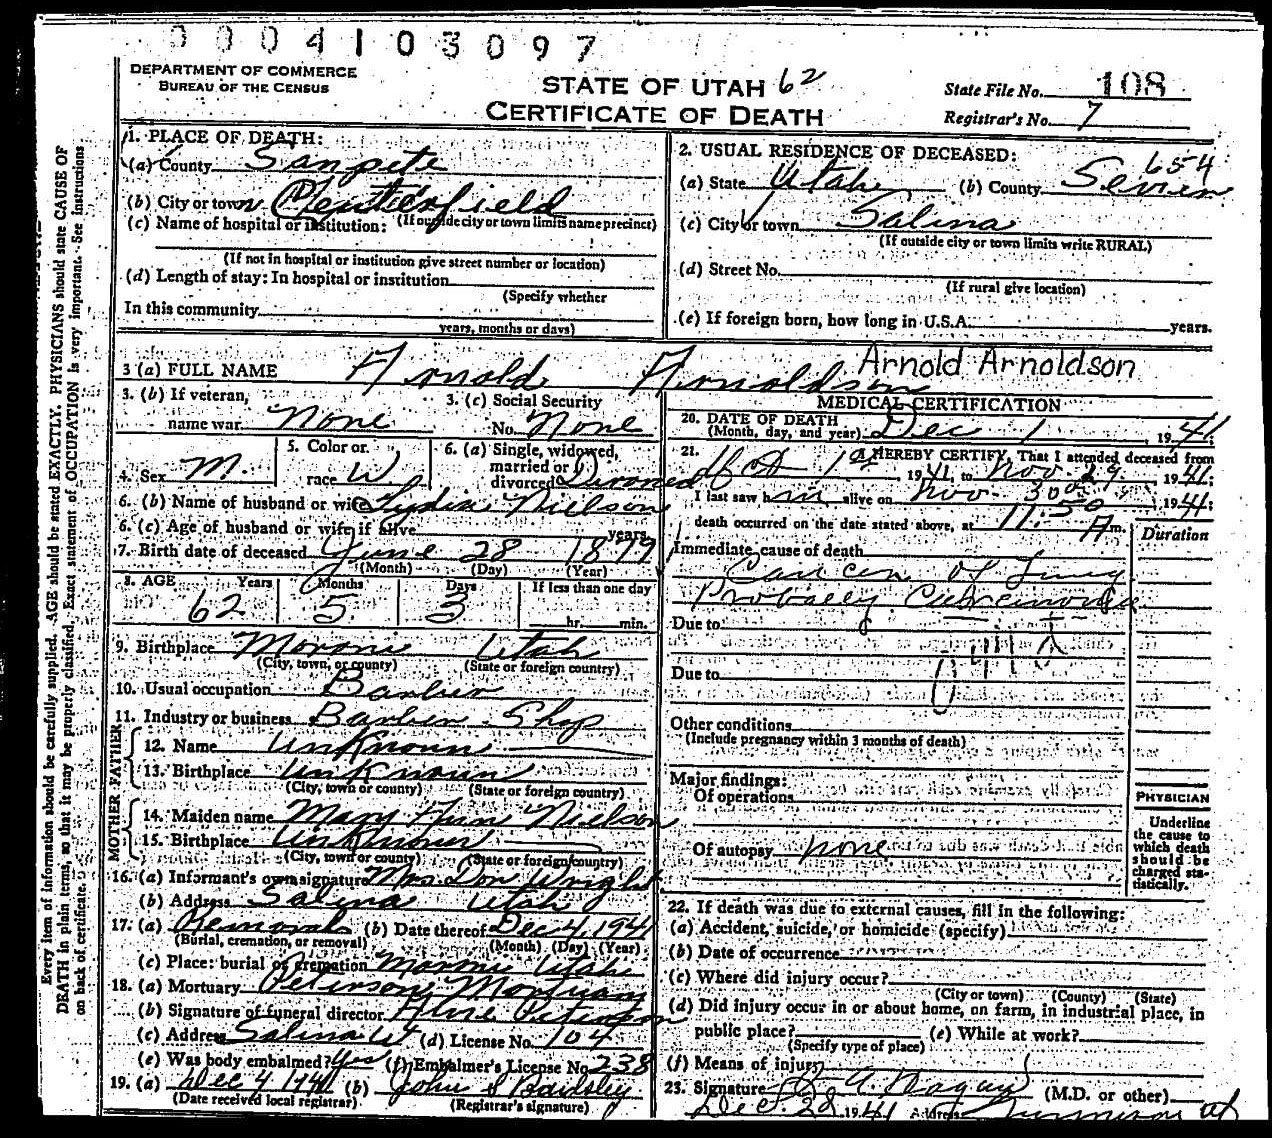 0004103097
DEPARTMENT OF COMMERCE
BUREAU OF THE CENSUS
STATE OF UTAH 62
CERTIFICATE OF DEATH
State File No. 108
Registrar's No. 7
Every item of information should be carefully supplied. AGE should be stated EXACTLY. PHYSICIANS should state CAUSE OF
DEATH in plain terms, so that it may be properly classified. Exact statement of OCCUPATION is very important. See instructions
on back of certificate.
1. PLACE OF DEATH:
(a) County Sanpete
(b) City or town Centerfield
(If outside city or town limits name precinct)
(c) Name of hospital or institution:
(If not in hospital or institution give street number or location)
(d) Length of stay: In hospital or institution
(Specify whether
In this community
years, months or days)
2. USUAL RESIDENCE OF DECEASED:
654
(a) State Utah (b) County Sevier
(c) City or town Salina
(If outside city or town limits write RURAL)
(d) Street No.
(If rural give location)
(e) If foreign born, how long in U.S.A. years.
3 (a) FULL NAME Arnold Arnoldson
Arnold Arnoldson
3. (b) If veteran, name war None
3. (c) Social Security No. None
4. Sex M.
5. Color or race W
6. (a) Single, widowed, married or divorced Divorced
6. (b) Name of husband or wife Lydia Nielson
6. (c) Age of husband or wife if alive years
7. Birth date of deceased June 28 1879
(Month) (Day) (Year)
8. AGE Years Months Days If less than one day
62 5 3 hr. min.
9. Birthplace Moroni Utah
(City, town, or county) (State or foreign country)
10. Usual occupation Barber
11. Industry or business Barber Shop
FATHER
12. Name Unknown
13. Birthplace Unknown
(City, town or county) (State or foreign country)
MOTHER
14. Maiden name Mary Ann Nielson
15. Birthplace Unknown
(City, town or county) (State or foreign country)
16. (a) Informant's own signature Mrs. Don Wright
(b) Address Salina Utah
17. (a) Removal (b) Date thereof Dec 4, 1941
(Burial, cremation, or removal) (Month) (Day) (Year)
(c) Place: burial or cremation Moroni Utah
18. (a) Mortuary Peterson Mortuary
(b) Signature of funeral director Peterson
(c) Address Salina Ut (d) License No. 104
(e) Was body embalmed? Yes (f) Embalmer's License No. 238
19. (a) Dec 4 1941 (b) John S Bardsley
(Date received local registrar) (Registrar's signature)
MEDICAL CERTIFICATION
20. DATE OF DEATH
(Month, day, and year) Dec 1, 1941;
21. I HEREBY CERTIFY, That I attended deceased from
1st 1941, to Nov. 29 1941;
I last saw him alive on Nov. 30 1941;
death occurred on the date stated above, at 11:50 A m.
Duration
Immediate cause of death
Cancer of Lung
Probably Carcinoma
Due to
Due to
Other conditions
(Include pregnancy within 3 months of death)
Major findings:
Of operations
Of autopsy none
PHYSICIAN
Underline
the cause to
which death
should be
charged sta-
tistically.
22. If death was due to external causes, fill in the following:
(a) Accident, suicide, or homicide (specify)
(b) Date of occurrence
(c) Where did injury occur?
(City or town) (County) (State)
(d) Did injury occur in or about home, on farm, in industrial place, in
public place? (e) While at work?
(Specify type of place)
(f) Means of injury
23. Signature A. Hagan (M.D. or other)
Dec. 28 1941 Address Gunnison Ut